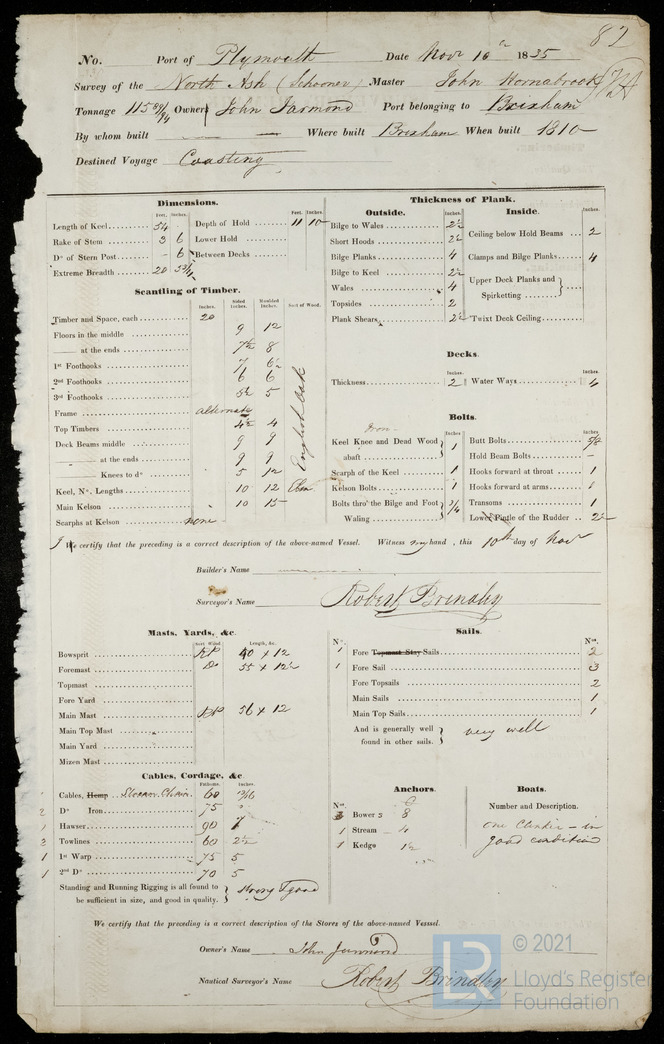 82
No. Port of Plymouth Date Novr 10th 1835
Survey of the North Ash (Schooner) Master John Hornabrook
Tonnage 115 89/94 Owner John Jarmond Port belonging to Brixham
By whom built Where built Brixham When built 1810
Destined Voyage Coasting
Dimensions.
Feet. Inches.
Length of Keel 54
Rake of Stem 3 6
Do of Stern Post - 6
Extreme Breadth 20
Feet. Inches.
Depth of Hold 11 10
Lower Hold
Between Decks
Scantling of Timber.
Inches. Sided Inches. Moulded Inches. Sort of Wood.
Timber and Space, each 20
Floors in the middle 9 12
at the ends 7½ 8
1st Foothooks 7 6½
2nd Foothooks 6 6
3rd Foothooks 5½ 5
Frame alternate
Top Timbers 4½ 4
Deck Beams middle 9 9
at the ends 9 9
Knees to do 5 12
English Oak
Keel, No. Lengths 10 12 Elm
Main Kelson 10 15
Scarphs at Kelson none
Thickness of Plank.
Outside. Inches.
Bilge to Wales 2½
Short Hoods 2½
Bilge Planks 4
Bilge to Keel 2½
Wales 4
Topsides 2
Plank Shears 2½
Inside. Inches.
Ceiling below Hold Beams 2
Clamps and Bilge Planks 4
Upper Deck Planks and
Spirketting
'Twixt Deck Ceiling
Decks.
Inches. Inches.
Thickness 2 Water Ways 4
Bolts.
Iron
Inches.
Keel Knee and Dead Wood
abaft 1
Scarph of the Keel 1
Kelson Bolts 1
Bolts thro' the Bilge and Foot
Waling 3/4
Inches.
Butt Bolts 5/8
Hold Beam Bolts -
Hooks forward at throat 1
Hooks forward at arms 1
Transoms 1
Lower Pintle of the Rudder 2½
I We certify that the preceding is a correct description of the above-named Vessel. Witness my hand, this 10th day of Novr
Builder's Name
Surveyor's Name Robert Brindley
Masts, Yards, &c.
Sort Wood. Length, &c.
Bowsprit RP 40 x 12
Foremast Do 55 x 12½
Topmast
Fore Yard
Main Mast RP 56 x 12
Main Top Mast
Main Yard
Mizen Mast
Sails.
No. Nos.
1 Fore Topmast Stay Sails 2
1 Fore Sail 3
Fore Topsails 2
Main Sails 1
Main Top Sails 1
And is generally well
found in other sails. very well
Cables, Cordage, &c.
Fathoms. Inches.
Cables, Hemp Stream Chain 60
2 Do Iron 75
1 Hawser 90 7
3 Towlines 60 2½
1 1st Warp 75 5
1 2nd Do 70 5
Standing and Running Rigging is all found to
be sufficient in size, and good in quality. strong & good
Anchors.
No.
Bowers 8
1 Stream 4
1 Kedge 1½
Boats.
Number and Description.
one Clinker - in
good condition
We certify that the preceding is a correct description of the Stores of the above-named Vessel.
Owner's Name John Jarmond
Nautical Surveyor's Name Robert Brindley
LR © 2021
Lloyd's Register
Foundation